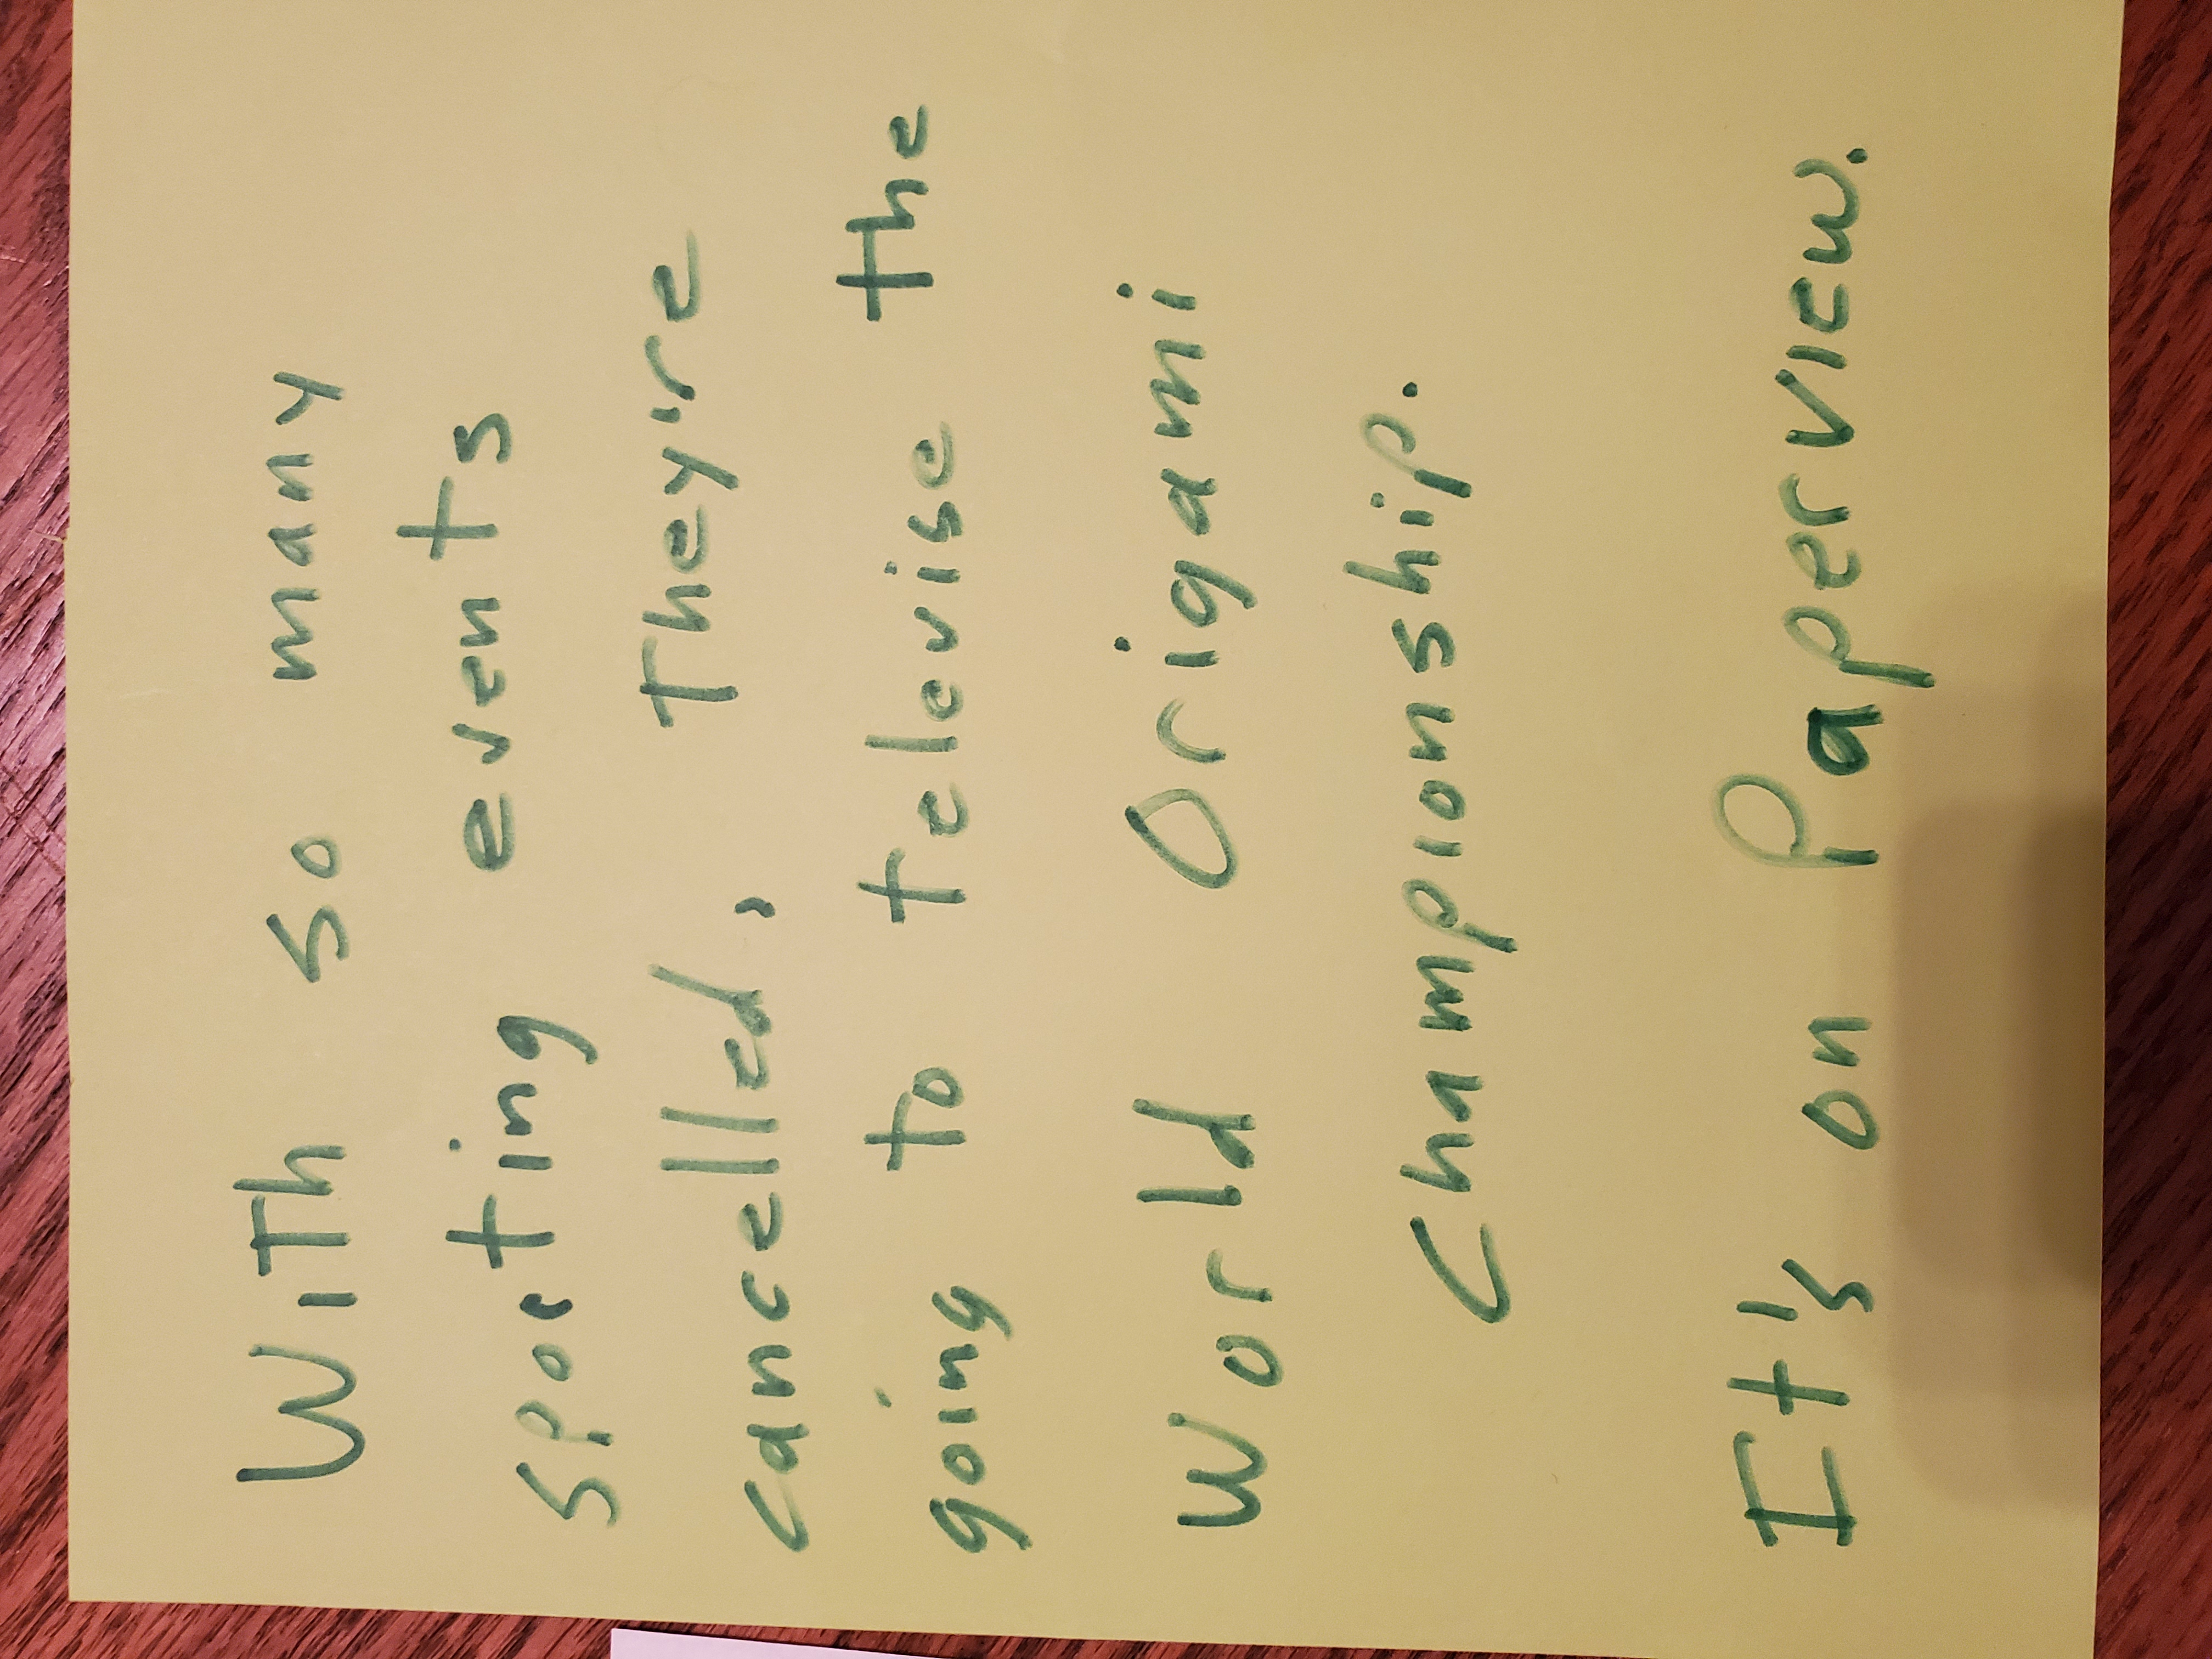 With so many
sporting events
cancelled, They're
going to televise the
World Origami
Championship.
It's on Paperview.